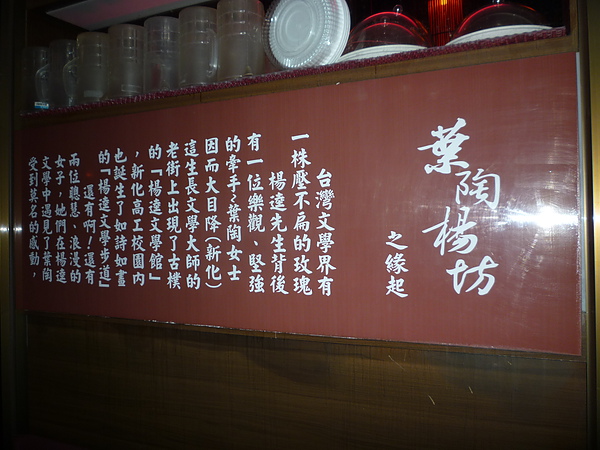 葉陶楊坊
之緣起
台灣文學界有
一株壓不扁的玫瑰
楊逵先生背後
有一位樂觀、堅強
的牽手~葉陶女士
因而大目降(新化)
這生長文學大師的
老街上出現了古樸
的「楊逵文學館」
,新化高工校園內
也誕生了如詩如畫
的「楊逵文學步道」
還有啊!還有
兩位聰慧、浪漫的
女子,她們在楊逵
文學中遇見了葉陶
受到莫名的感動,